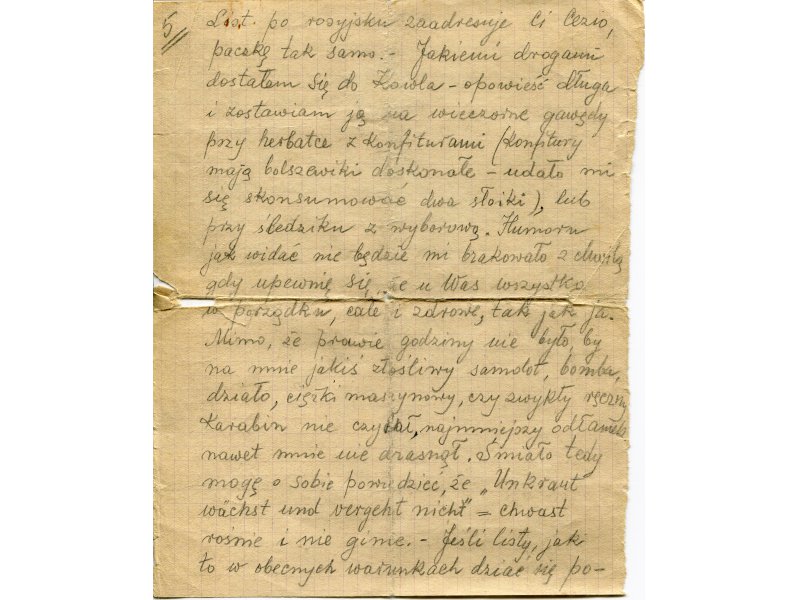 5
List po rosyjsku zaadresuje Ci Cezio,
paczkę tak samo. – Jakiemi drogami
dostałam się do Kowla – opowieść długa
i zostawiam ją na wieczorne gawędy
przy herbatce z konfiturami (konfitury
mają bolszewiki doskonałe – udało mi
się skonsumować dwa słoiki), lub
przy śledziku z wyborową. Humoru
jak widać nie będzie mi brakowało z chwilą
gdy upewnię się, że u Was wszystko
w porządku, całe i zdrowe, tak jak ja.
Mimo, że prawie godziny nie było, by
na mnie jakiś złośliwy samolot, bomba,
działo, ciężki maszynowy, czy zwykły ręczny
karabin nie czychał, najmniejszy odłamek
nawet mnie nie drasnął. Śmiało tedy
mogę o sobie powiedzieć, że „Unkraut
wächst und vergeht nicht" = chwast
rośnie i nie ginie. – Jeśli listy, jak
to w obecnych warunkach dziać się po-